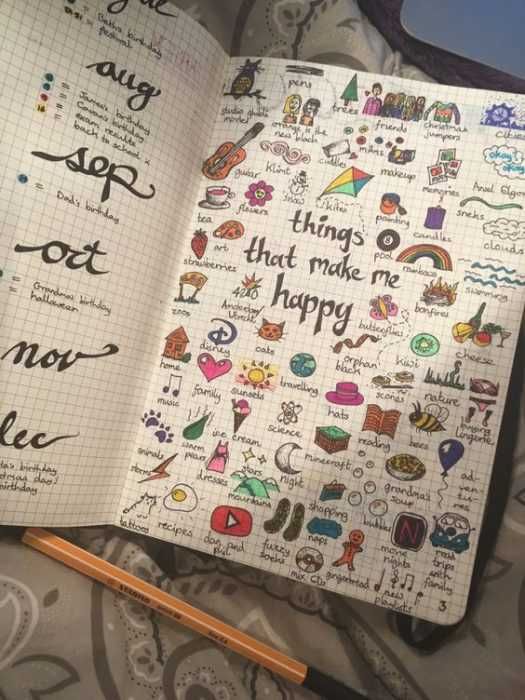 aug
= Beths birthday
= festival
= James's birthday
= birthday
= exam results
= back to school x
sep
= Dad's birthday
oct
= Grandma's birthday
= halloween
nov
dec
birthday
things
that make me
happy
studio ghibli
movies
pens
trees
friends
christmas
jumpers
cities
orange is the
new black
guitar
klimt
cuddles
mums
makeup
memories
okay?
okay!
snow
kites
painting
candles
sneks
clouds
tea
flowers
pool
rainbows
swimming
art
strawberries
zoos
4240
bonfires
butterflies
disney
cats
orphan
black
kiwi
cheese
home
family
sunsets
travelling
scones
nature
music
hats
ice cream
science
reading
bees
animals
warm
minecraft
night
stars
dresses
grandma's
soup
ad-
ven-
tures
storms
mountains
shopping
bubbles
tattoos
recipes
dan and
phil
fuzzy
socks
naps
gingerbread
movie
nights
N
road
trips
with
family
mix CDs
new
playlists
3
STABILO